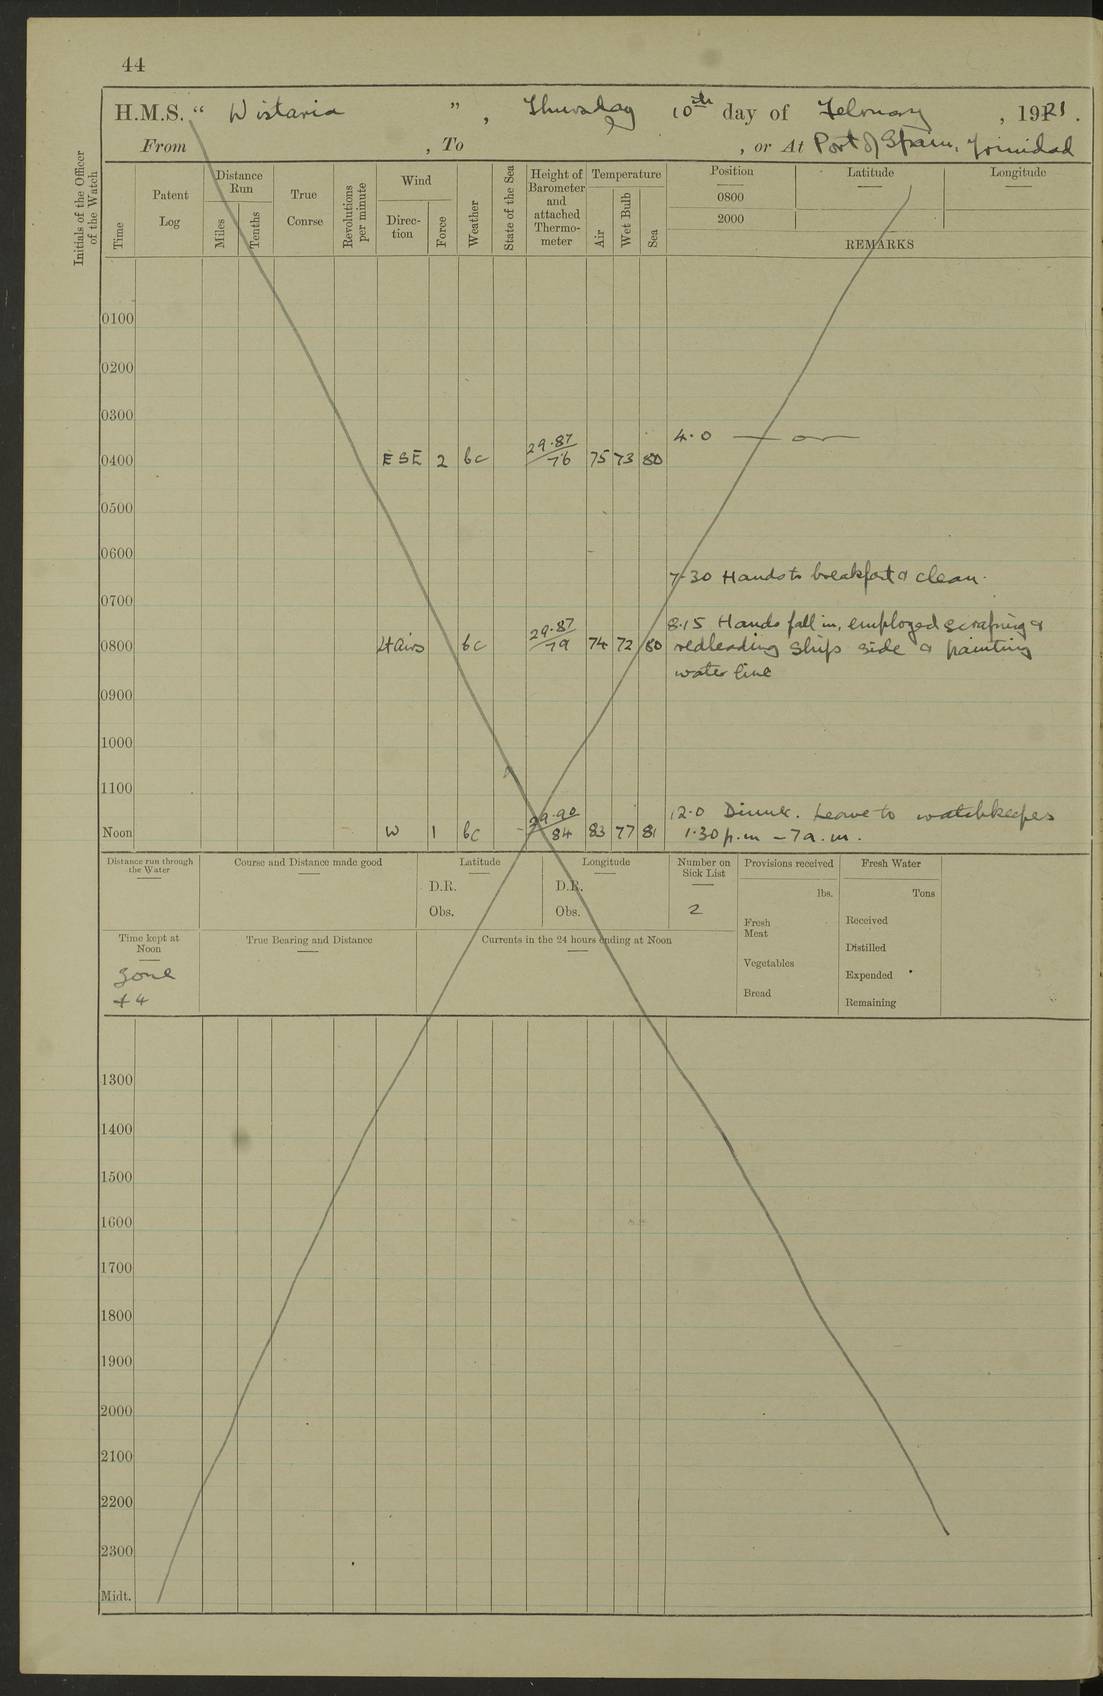 44
H.M.S. “ Wistaria ” , Thursday 10th day of February , 1921 .
From , To , or At Port of Spain, Trinidad
Initials of the Officer of the Watch
Time
Patent Log
Distance Run
Miles
Tenths
True Course
Revolutions per minute
Wind
Direc-tion
Force
Weather
State of the Sea
Height of Barometer and attached Thermo-meter
Temperature
Air
Wet Bulb
Sea
Position Latitude Longitude
0800
2000
REMARKS
0100
0200
0300
4.0 — o —
0400 ESE 2 bc 29.87/76 75 73 80
0500
0600
7.30 Hands to breakfast & clean.
0700
8.15 Hands fall in, employed scraping &
0800 Lt airs bc 29.87/79 74 72 80 redleading ships side & painting
water line
0900
1000
1100
12.0 Dinner. Leave to watchkeepers
Noon W 1 bc 29.90/84 83 77 81 1.30 p.m – 7 a.m.
Distance run through the Water
Course and Distance made good
Latitude
D.R.
Obs.
Longitude
D.R.
Obs.
Number on Sick List
2
Provisions received
lbs.
Fresh Meat
Vegetables
Bread
Fresh Water
Tons
Received
Distilled
Expended
Remaining
Time kept at Noon
Zone
+4
True Bearing and Distance
Currents in the 24 hours ending at Noon
1300
1400
1500
1600
1700
1800
1900
2000
2100
2200
2300
Midt.